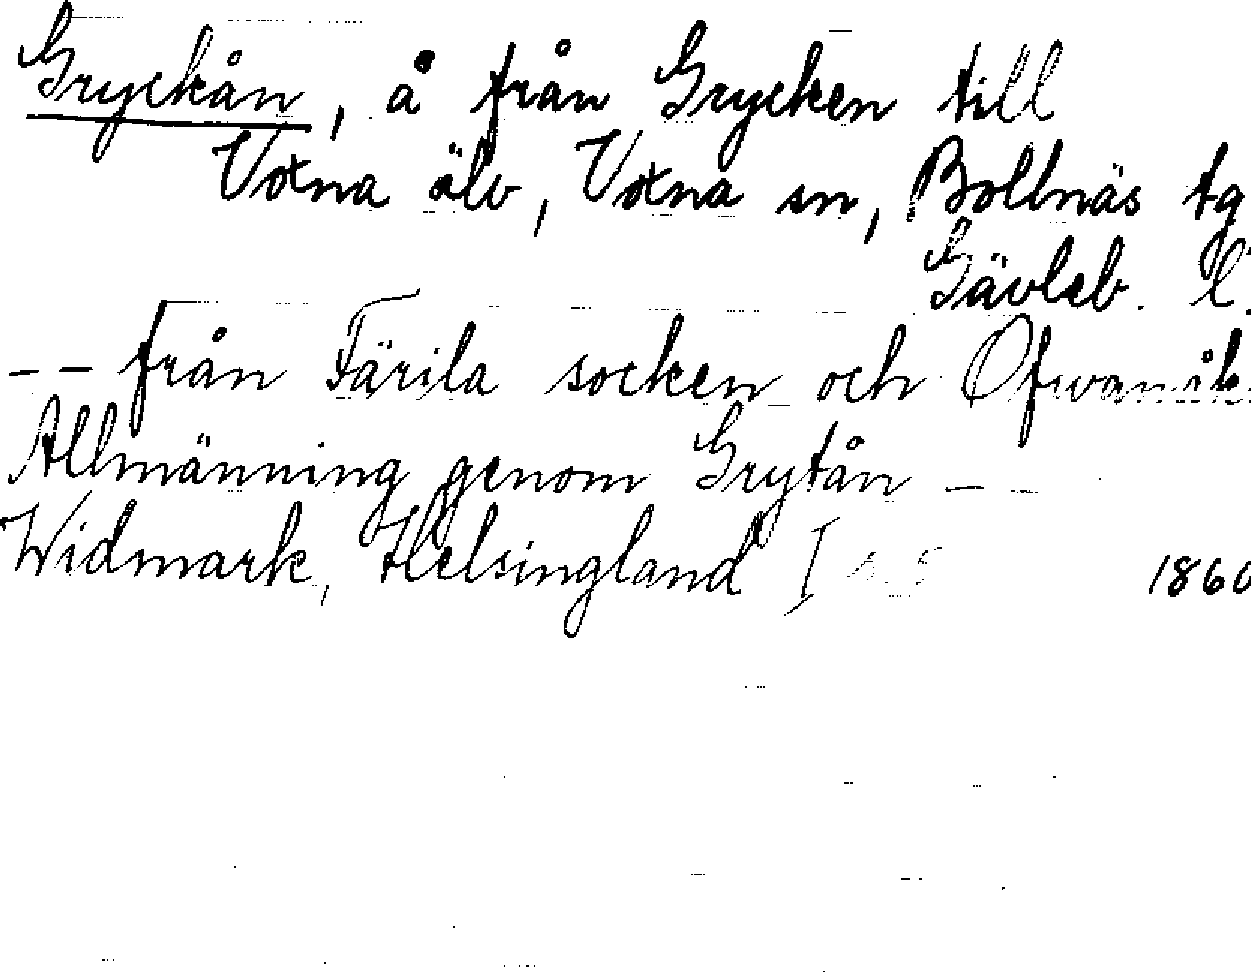 Gryckån, å från Grycken till
Voxna älv, Voxna sn, Bollnäs tg
Gävleb. l.
-- från Färila socken och Ofwanåk.
Allmänning genom Grytån --
Widmark, Helsingland I 1860